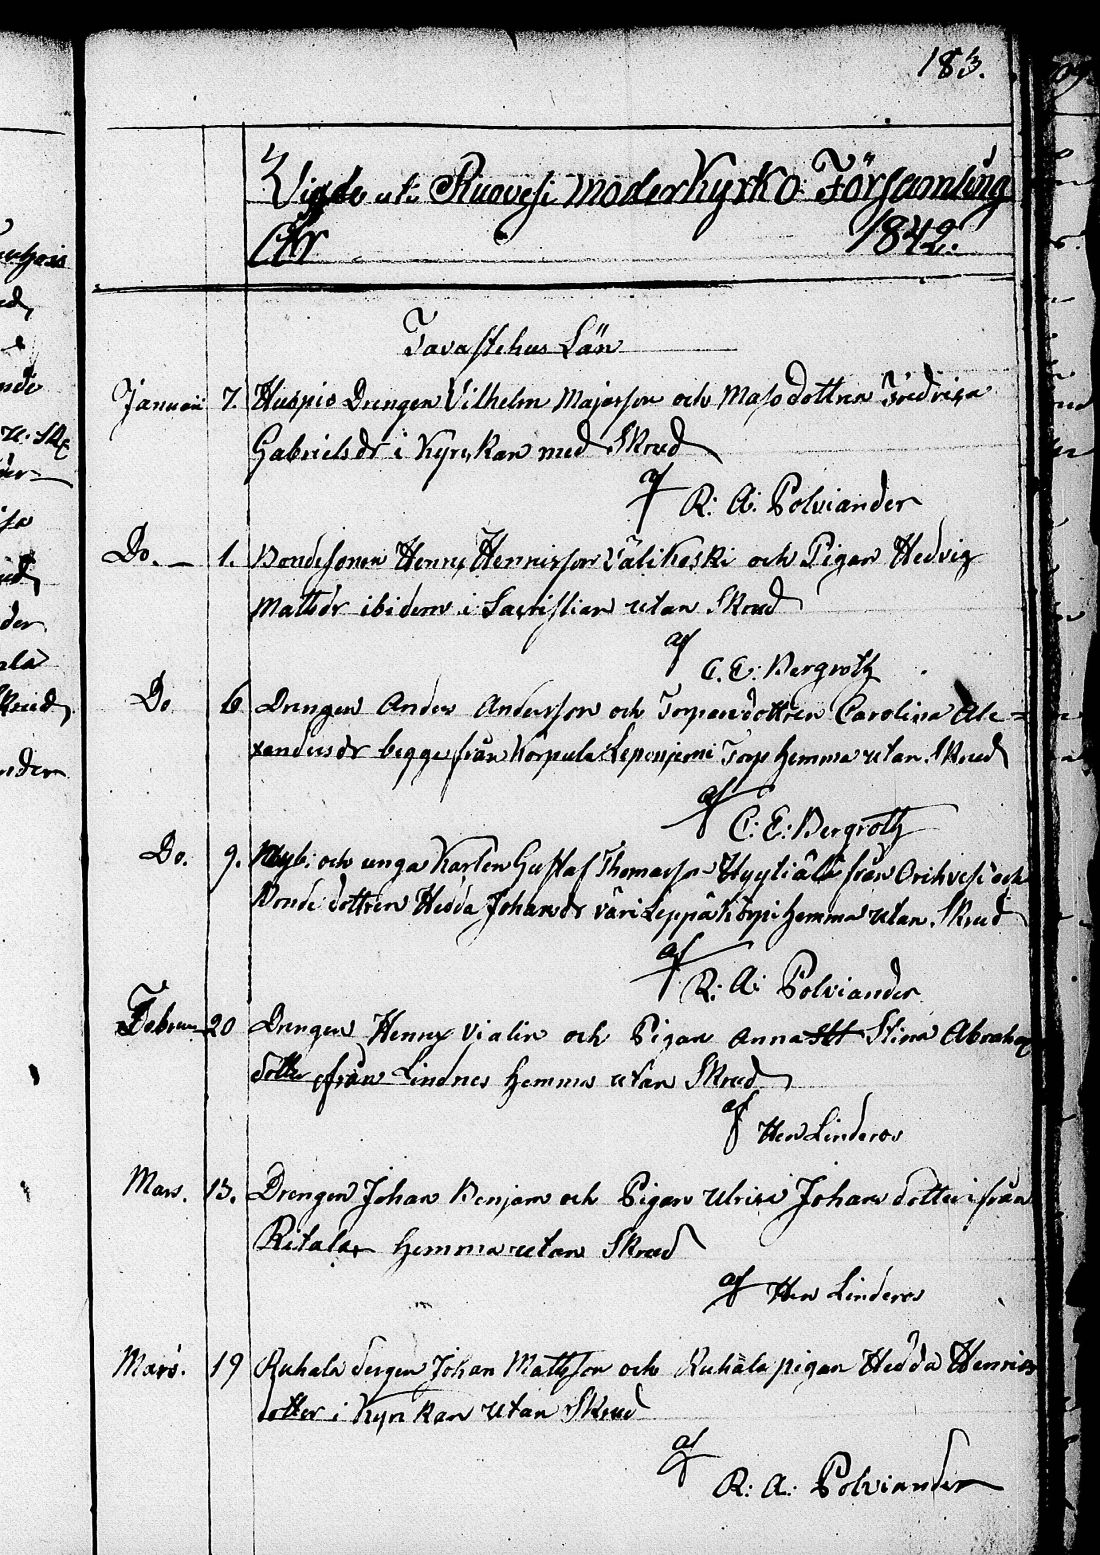 183.
Vigde uti Ruovesi Moderkyrko Församling
År 1842.
Tavastehus Län
Januarii 7. Huspio Drengen Vilhelm Majorson och Maso dottren Fredrica
Gabrielsdr i Kyrkan med Skrud
af R: A: Polviander
Do. 1. Bondesonen Henric Henricsson Välikoski och Pigan Hedvig
Mattsdr ibidem i Sacristian utan Skrud
af C. E: Bergroth
Do 6 Drengen Anders Andersson och Torparedottren Carolina Ale-
xandersdr begge från Korpula Torp hemma utan Skrud
af C: E: Bergroth
Do. 9. Nyb: och unga Karlen Gustaf Thomasson Hyytiälä från Orihvesi och
Bonde dottren Hedda Johansdr Väri Leppäkörpi hemma utan Skrud
af R: A: Polviander
Februar 20 Drengen Henric Vialin och Pigan Anna Stina Abraha
dotter från Lindnes hemma utan Skrud
af Hen Linderos
Mars. 13. Drengen Johan Benjam och Pigan Ulrica Johans dotter ifrån
Ritala hemma utan Skrud
af Hen Linderos
Mars. 19 Ruhala dregen Johan Mattsson och Ruhala pigan Hedda Henrics
dotter i Kyrkan utan Skrud
af R: A: Polviander